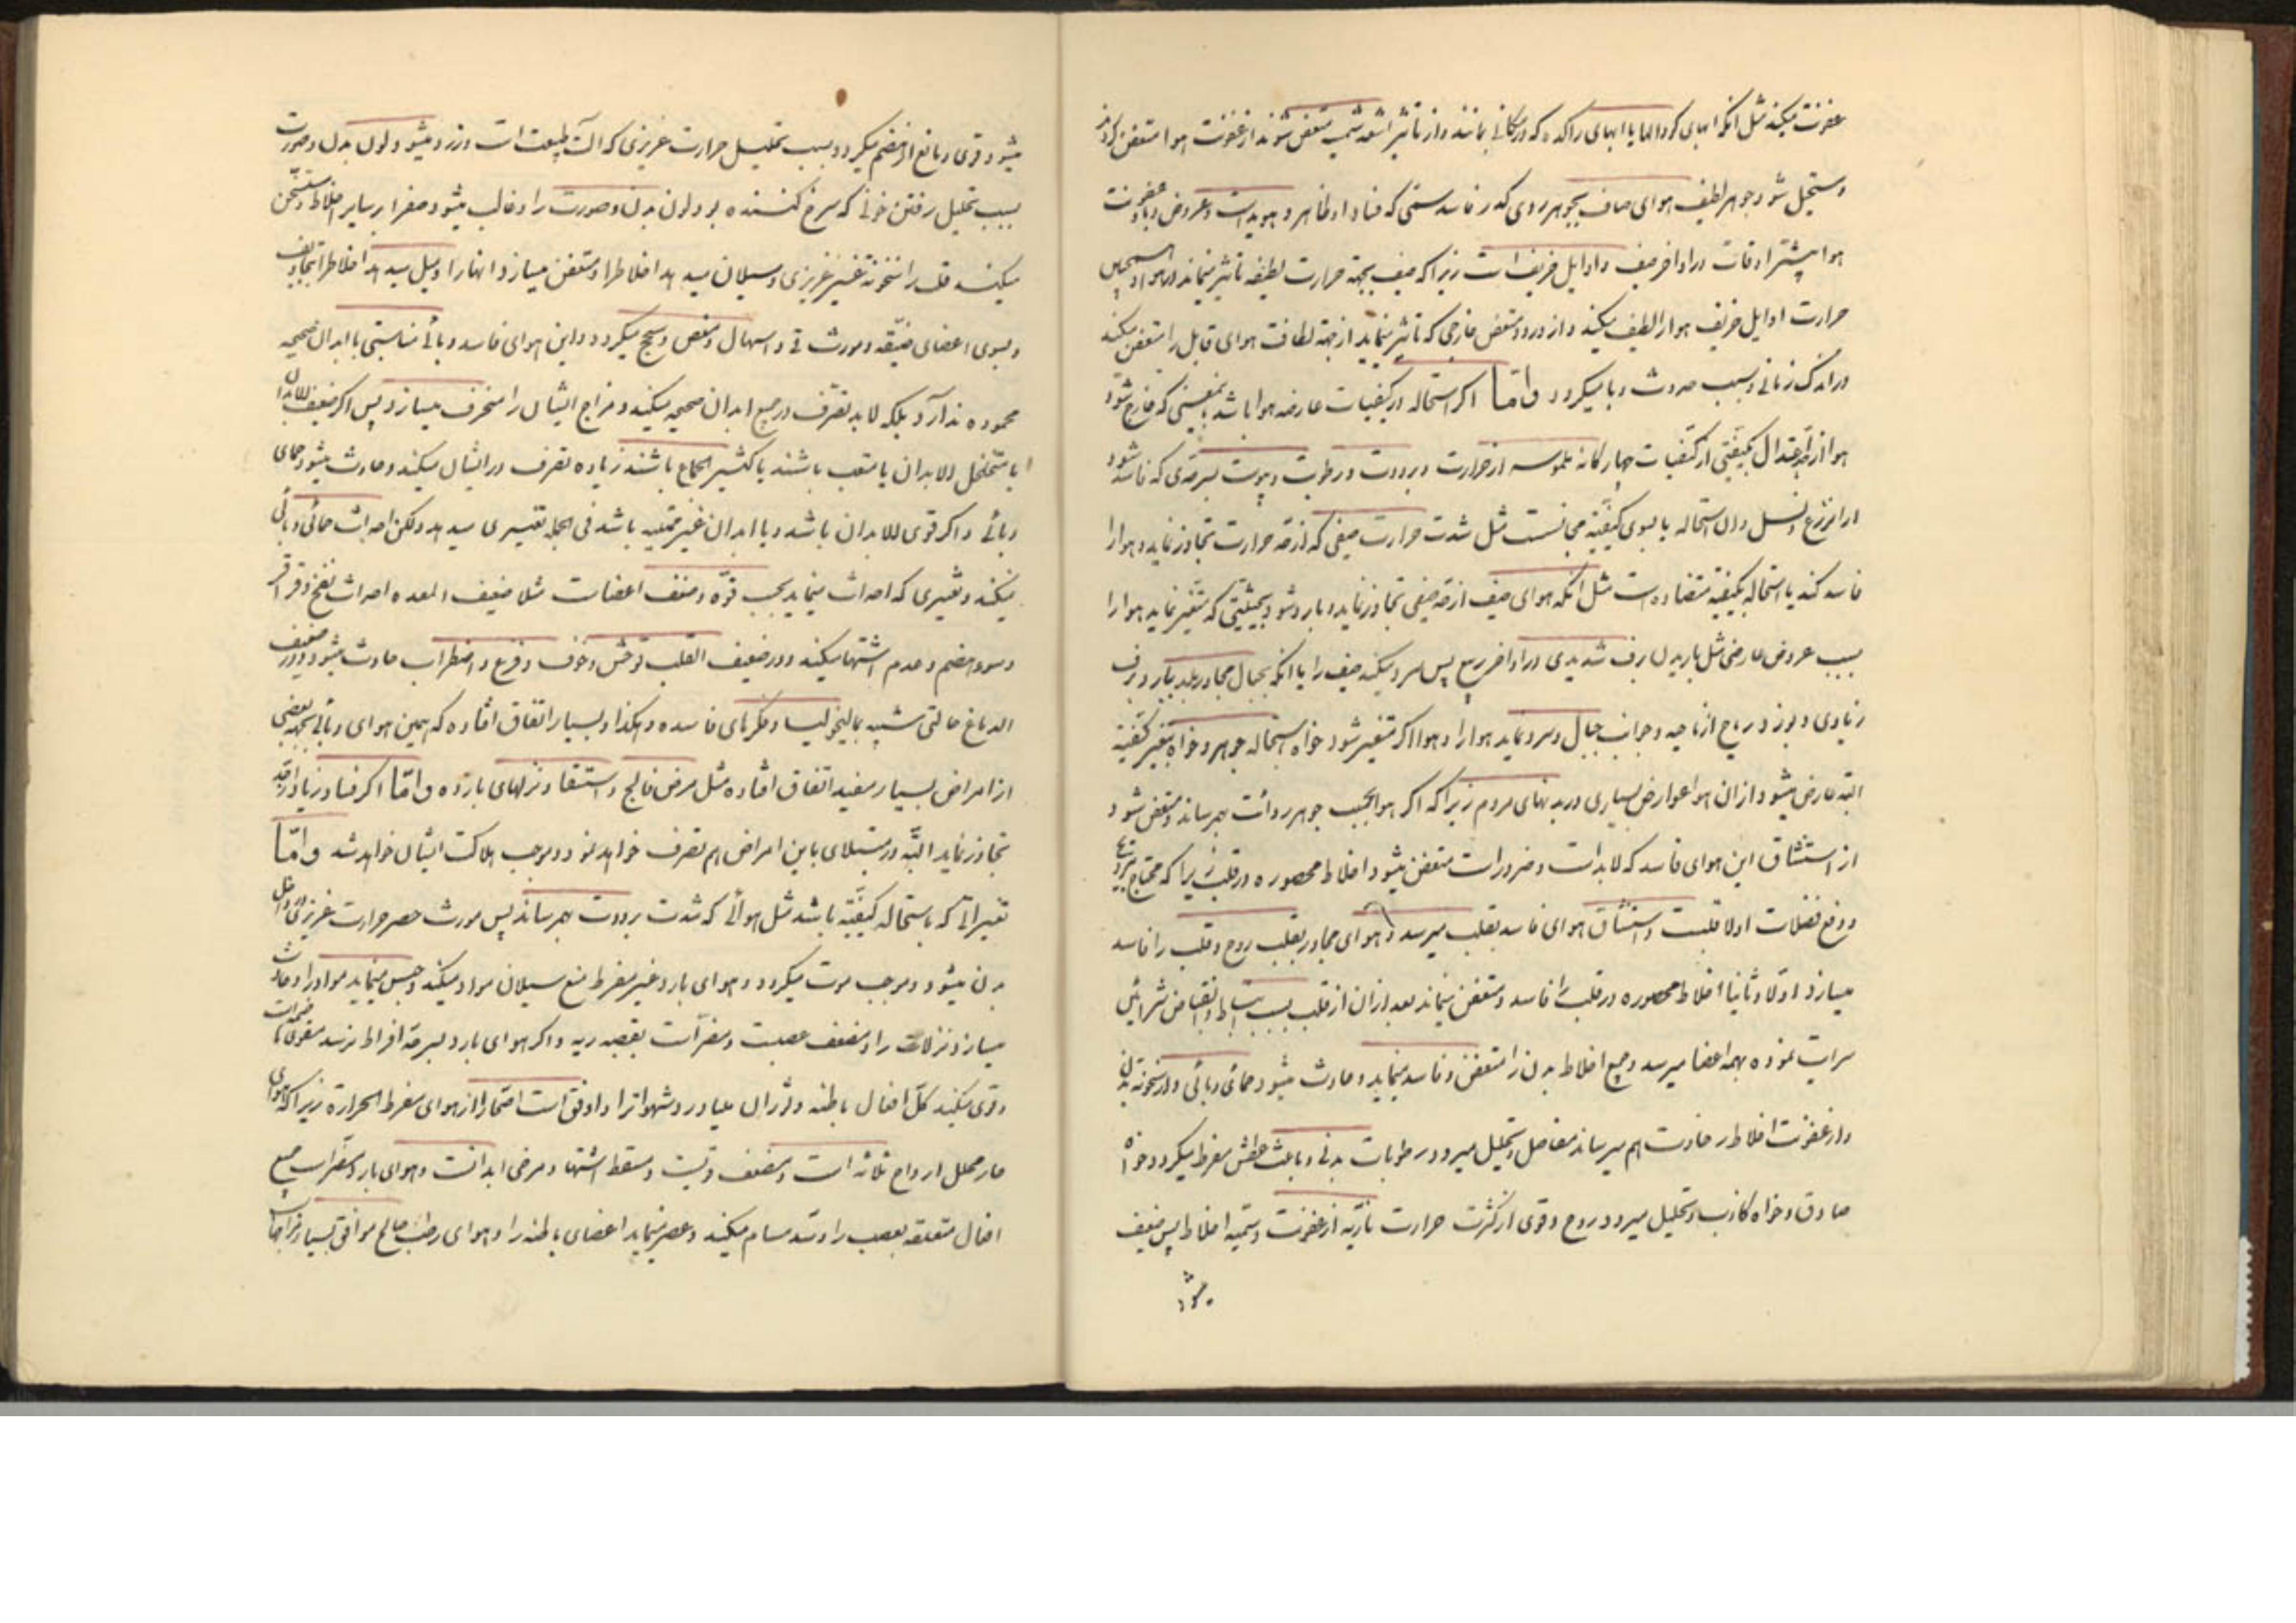 عفونت میکند مثل آنکه ابهای کودالها یا ابهای راکده که در مکانی بمانند و از تاثیر اشعه شمس متعفن شوند از عفونت هوا متعفن کردد
و مستحیل شود جوهر لطیف هوای صاف بجوهر ردی کدر فاسد سمّی که فساد او ظاهر و هویداست و عروض وبا و عفونت
هوا بیشتر اوقات در اواخر صیف و اوایل خریف است زیرا که صیف بجهة حرارت لطیفه تاثیر مینماید در هوا و
حرارت اوایل خریف هوا را لطیف میکند و از ورود متعفن خارجی که تاثیر نماید از جهة لطافت هوای قابل را متعفن میکند
در اندک زمانی و سبب حدوث وبا میکردد و امّا اکر استحاله در کیفیات عارضه هوا باشد بمعنی که خارج شود
هوا از حد اعتدال بکیفیتی از کیفیات چهارکانه ملموسه از حرارت و برودت و رطوبت و یبوست بسرحدی که فاسد شود
از او زرع و نسل و ان استحاله یا بسوی کیفیّة مجانست مثل شدت حرارت صیفی که از حد حرارت تجاوز نماید و هوا را
فاسد کند یا استحاله بکیفیّة متضاده است مثل آنکه هوای صیف از حد صیفی تجاوز نماید و بارد شود بحیثیتی که متغیر نماید هوا را
بسبب عروض عارضی مثل باریدن برف شدیدی در اواخر ربیع پس سرد میکند صیف را یا انکه بجبال مجاور بلد ببارد برف
زیادی و بوزد ریاح از ناحیه و جوانب جبال و سرد نماید هوا را و هوا اکر متغیر شود خواه استحاله جوهر و خواه بتغییر کیفیّة
البته عارض میشود از ان هوا عوارض بسیاری در بدنهای مردم زیرا که اکر هوا بحسب جوهر ردائت بهم رساند و متعفن شود
از استنشاق این هوای فاسد که لابدات و ضرورات متعفن میشود اخلاط محصوره در قلب زیرا که محتاج بترویح
و دفع فضلات اولا قلبست و استنشاق هوای فاسد بقلب میرسد و هوای مجاور بقلب روح و قلب را فاسد
میسازد اوّلا و ثانیا اخلاط محصوره در قلب را فاسد و متعفن مینماید بعد از ان از قلب بسبب انبساط و انقباض شرائین
سرایت نموده بهمه اعضا میرسد و جمیع اخلاط بدن را متعفن و فاسد مینماید و حادث میشود حمائی وبائی و از سخونة بدن
و از عفونت اخلاط حادث الم میرساند مفاصل و تحلیل میرود رطوبات بدنی و باعث عطش مفرط میکردد خواه
صادق و خواه کاذب و تحلیل میرود روح و قوی از کثرت حرارت ناریّه از عفونت و سمّیه اخلاط پس ضعیف
میشود
میشود قوی و مانع از هضم میکردد و بسبب تحلیل حرارت غریزی که الت طبیعت است و زرد میشود لون بدن و صورت
بسبب تحلیل رفتن خونی که سرخ کننده بود لون بدن و صورت را و غالب میشود صفرا بر سایر اخلاط و متسخن
میکند قلب را سخونة غیر غریزی و سیلان میدهد اخلاط را و متعفن میسازد انها را و میل میدهد اخلاط را بتجاویف
و بسوی اعضای ضیّقه و مورث قی و اسهال و مغص و سحج میکردد و این هوای فاسد وبائی مناسبتی با ابدان صحیحه
محموده ندارد بلکه لابد تصرف در جمیع ابدان صحیحه میکند و مزاج ایشان را منحرف میسازد پس اکر ضعیف الابدان
یا متخلخل الابدان یا متعب باشند یا کثیر الجماع باشند زیاده تصرف در ایشان میکند و حادث میشود حمای
وبائی و اکر قوی الابدان باشد و یا ابدان غیر ممتلیه باشد فی الجمله تغییری میدهد ولکن احداث حمائی وبائی
نمیکند و تغییری که احداث مینماید بحسب قوّة و ضعف اعضاست مثلا ضعیف المعده احداث نفخ و قراقر
و سوء هضم و عدم اشتها میکند و در ضعیف القلب توحش و خوف و فزع و اضطراب حادث میشود و در ضعیف
الدماغ حالتی شبیه بمالیخولیا و فکرهای فاسده و هکذا و بسیار اتفاق افتاده که همین هوای وبائی بجهة بعضی
از امراض بسیار مفید اتفاق افتاده مثل مرض فالج و استسقا و نزلهای بارده و امّا اکر فساد زیاد از حد
تجاوز نماید البتّه در مبتلای باین امراض هم تصرف خواهد نمود و موجب هلاکت ایشان خواهد شد و امّا
تغییراتی که باستحاله کیفیّة باشد مثل هوائی که شدت برودت بهم رساند پس مورث حصر حرارت غریزی در داخل
بدن میشود و موجب موت میکردد و هوای بارد غیر مفرط منع سیلان مواد میکند و حبس مینماید مواد را و حادث
میسازد نزلات را و مضعف عصبست و مضرّ است بقصبه ریه و اکر هوای بارد بسرحد افراط نرسد مقوّی
و قوی میکند کلّ افعال باطنه و لرزان میاورد و شهوات را و اوفق است اصحا را از هوای مفرط الحراره زیرا که هوای
حار محلل ارواح ثلاثه است و مضعف قوتیست و مسقط اشتها و مرخی ابدانست و هوای بارد مضرّ است بجمیع
افعال متعلقه بعصب را و سدّ مسام میکند و عصر مینماید اعضای باطنه را و هوای رطب صالح موافق بسیار مزاجها